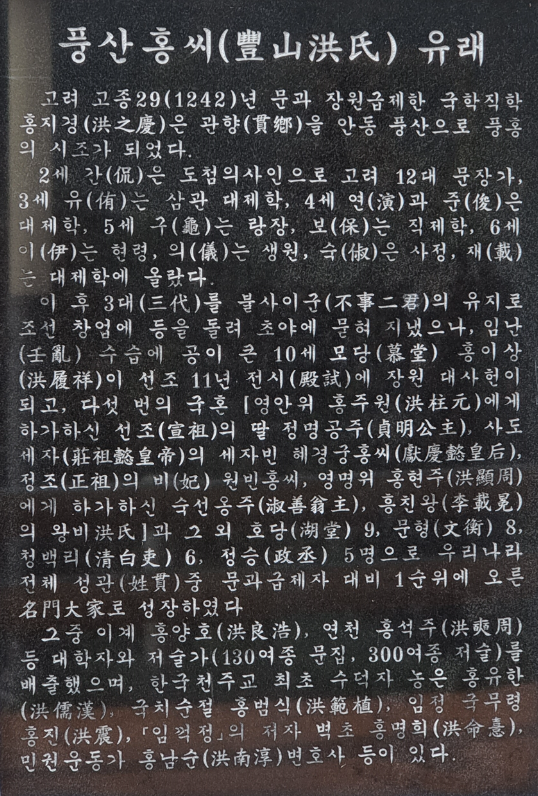 풍산홍씨(豐山洪氏) 유래
고려 고종29(1242)년 문과 장원급제한 국학직학
홍지경(洪之慶)은 관향(貫鄕)을 안동 풍산으로 풍홍
의 시조가 되었다.
2세 간(侃)은 도첨의사인으로 고려 12대 문장가,
3세 유(侑)는 삼관 대제학, 4세 연(演)과 준(俊)은
대제학, 5세 구(龜)는 랑장, 보(保)는 직제학, 6세
이(伊)는 현령, 의(儀)는 생원, 숙(俶)은 사정, 재(載)
는 대제학에 올랐다.
이 후 3대(三代)를 불사이군(不事二君)의 유지로
조선 창업에 등을 돌려 초야에 묻혀 지냈으나, 임난
(壬亂) 수습에 공이 큰 10세 모당(慕堂) 홍이상
(洪履祥)이 선조 11년 전시(殿試)에 장원 대사헌이
되고, 다섯 번의 국혼 [영안위 홍주원(洪柱元)에게
하가하신 선조(宣祖)의 딸 정명공주(貞明公主), 사도
세자(莊祖懿皇帝)의 세자빈 혜경궁홍씨(獻慶懿皇后),
정조(正祖)의 비(妃) 원빈홍씨, 영명위 홍현주(洪顯周)
에게 하가하신 숙선옹주(淑善翁主), 흥친왕(李載冕)
의 왕비洪氏]과 그 외 호당(湖堂) 9, 문형(文衡) 8,
청백리(清白吏) 6, 정승(政丞) 5명으로 우리나라
전체 성관(姓貫)중 문과급제자 대비 1순위에 오른
名門大家로 성장하였다
그중 이계 홍양호(洪良浩), 연천 홍석주(洪奭周)
등 대학자와 저술가(130여종 문집, 300여종 저술)를
배출했으며, 한국천주교 최초 수덕자 농은 홍유한
(洪儒漢), 국치순절 홍범식(洪範植), 임정 국무령
홍진(洪震), 「임꺽정」의 저자 벽초 홍명희(洪命憙),
민권운동가 홍남순(洪南淳)변호사 등이 있다.